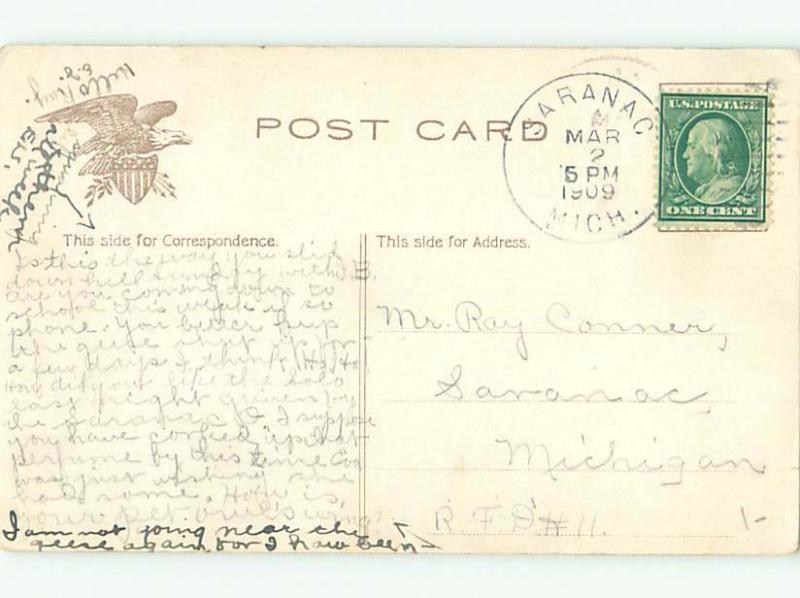 Hello Ray.
POST CARD
SARANAC
MAR
2
5 PM
1909
MICH.
U.S. POSTAGE
ONE CENT
This side for Correspondence.
This side for Address.
Is this the way you slid
down hill Sunday with B.
are you coming down to
school this week if so
phone. You better keep
the geese shut up for
a few days I think (Ha) Ha
How did you like the solo
last night given by
the Saranac I suppose
you have corked up that
perfume by this time Con
was just wishing she
had some. How is
your pet one's wing
I am not going near the
geese again, for I have been
Mr. Ray Conner,
Saranac,
Michigan
R. F. D # 11.
1-